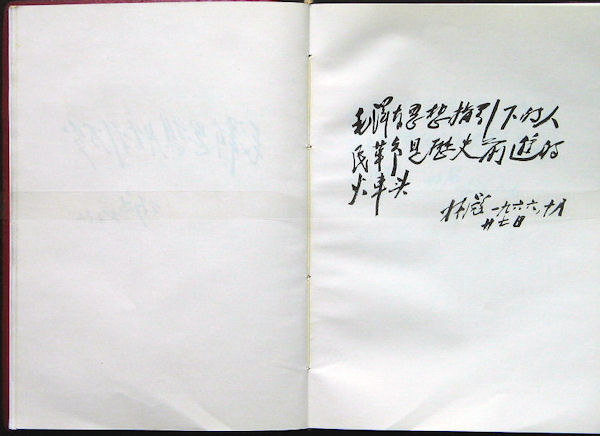 毛泽东思想指引下的人
民革命是历史前进的
火车头
林彪 一九六六,十月
廿七日